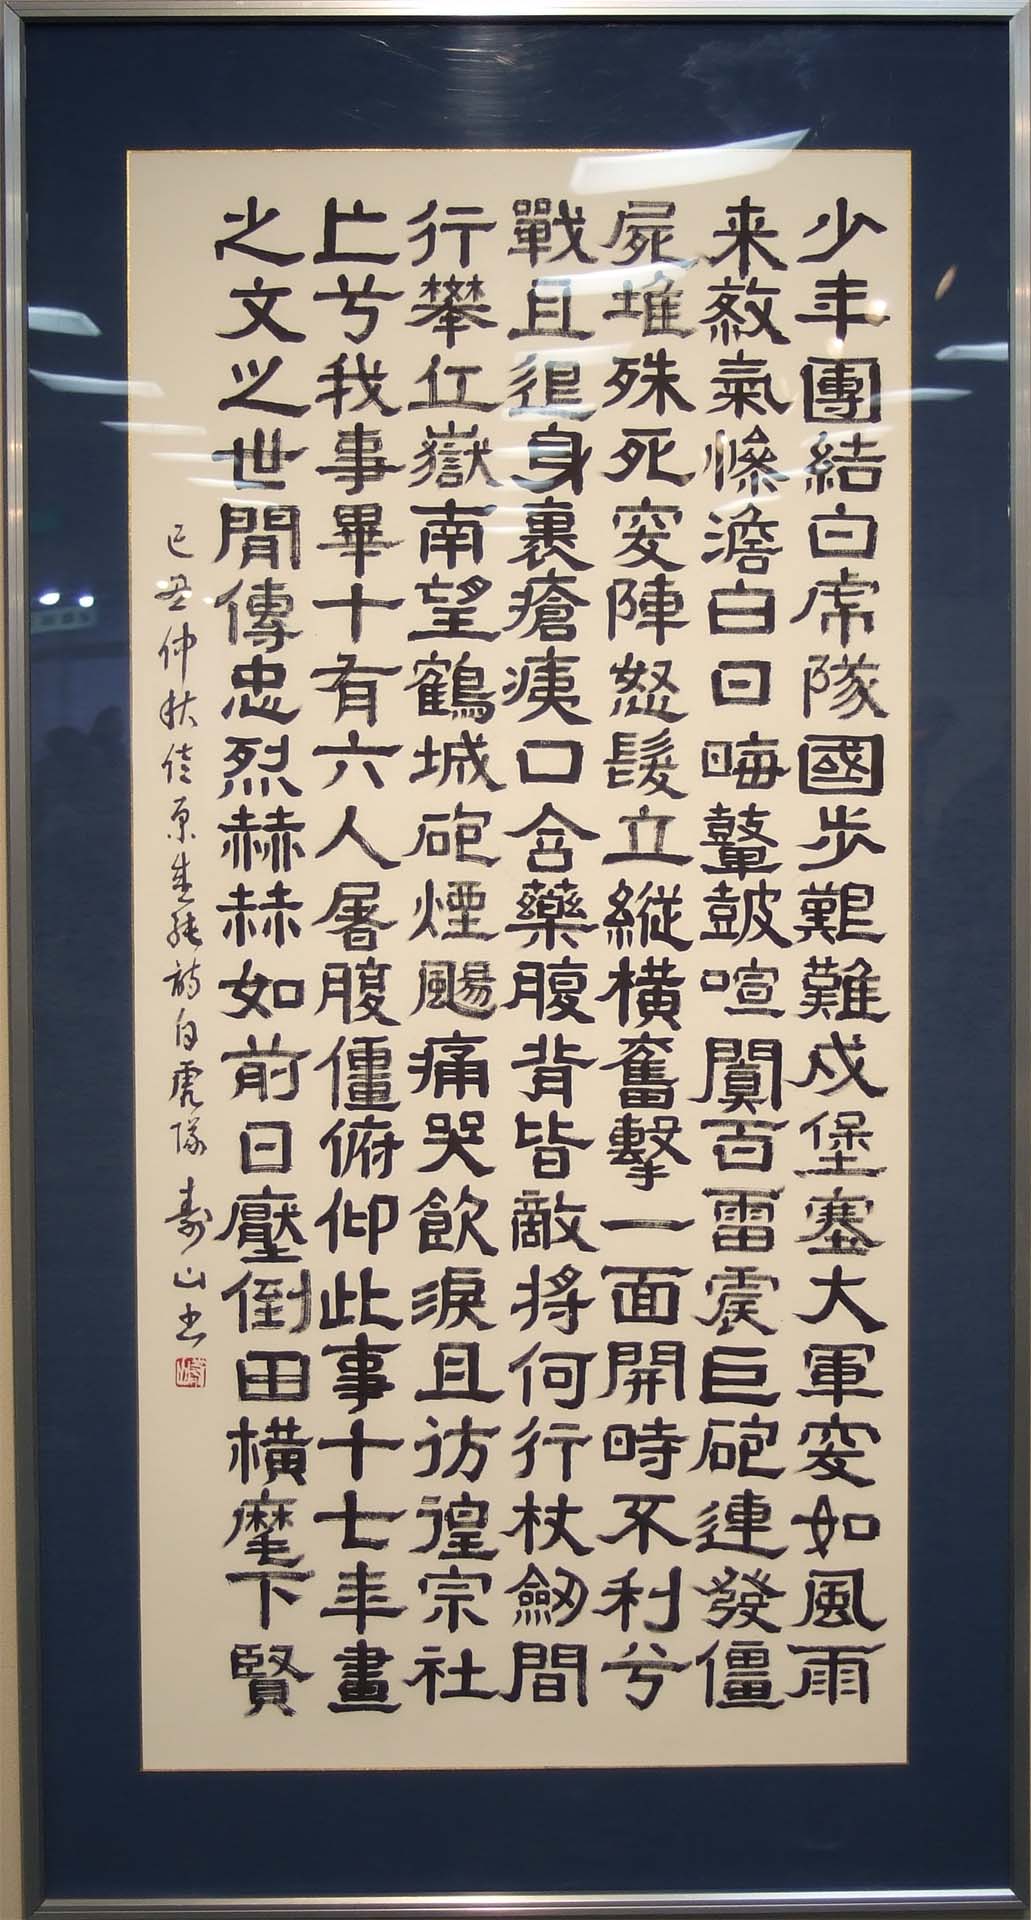 少年團結白虎隊國歩艱難戍堡塞大軍突如風雨
来殺氣惨澹白日晦鼙鼓喧闐百雷震巨砲連發僵
屍堆殊死突陣怒髮立縦横奮擊一面開時不利兮
戰且退身裹瘡痍口含藥腹背皆敵将何行杖劔間
行攀丘嶽南望鶴城砲煙颺痛哭飲淚且彷徨宗社
亡兮我事畢十有六人屠腹僵俯仰此事十七年畫
之文之世間傳忠烈赫赫如前日壓倒田横麾下賢
己丑仲秋佐原盛純詩白虎隊 壽山書